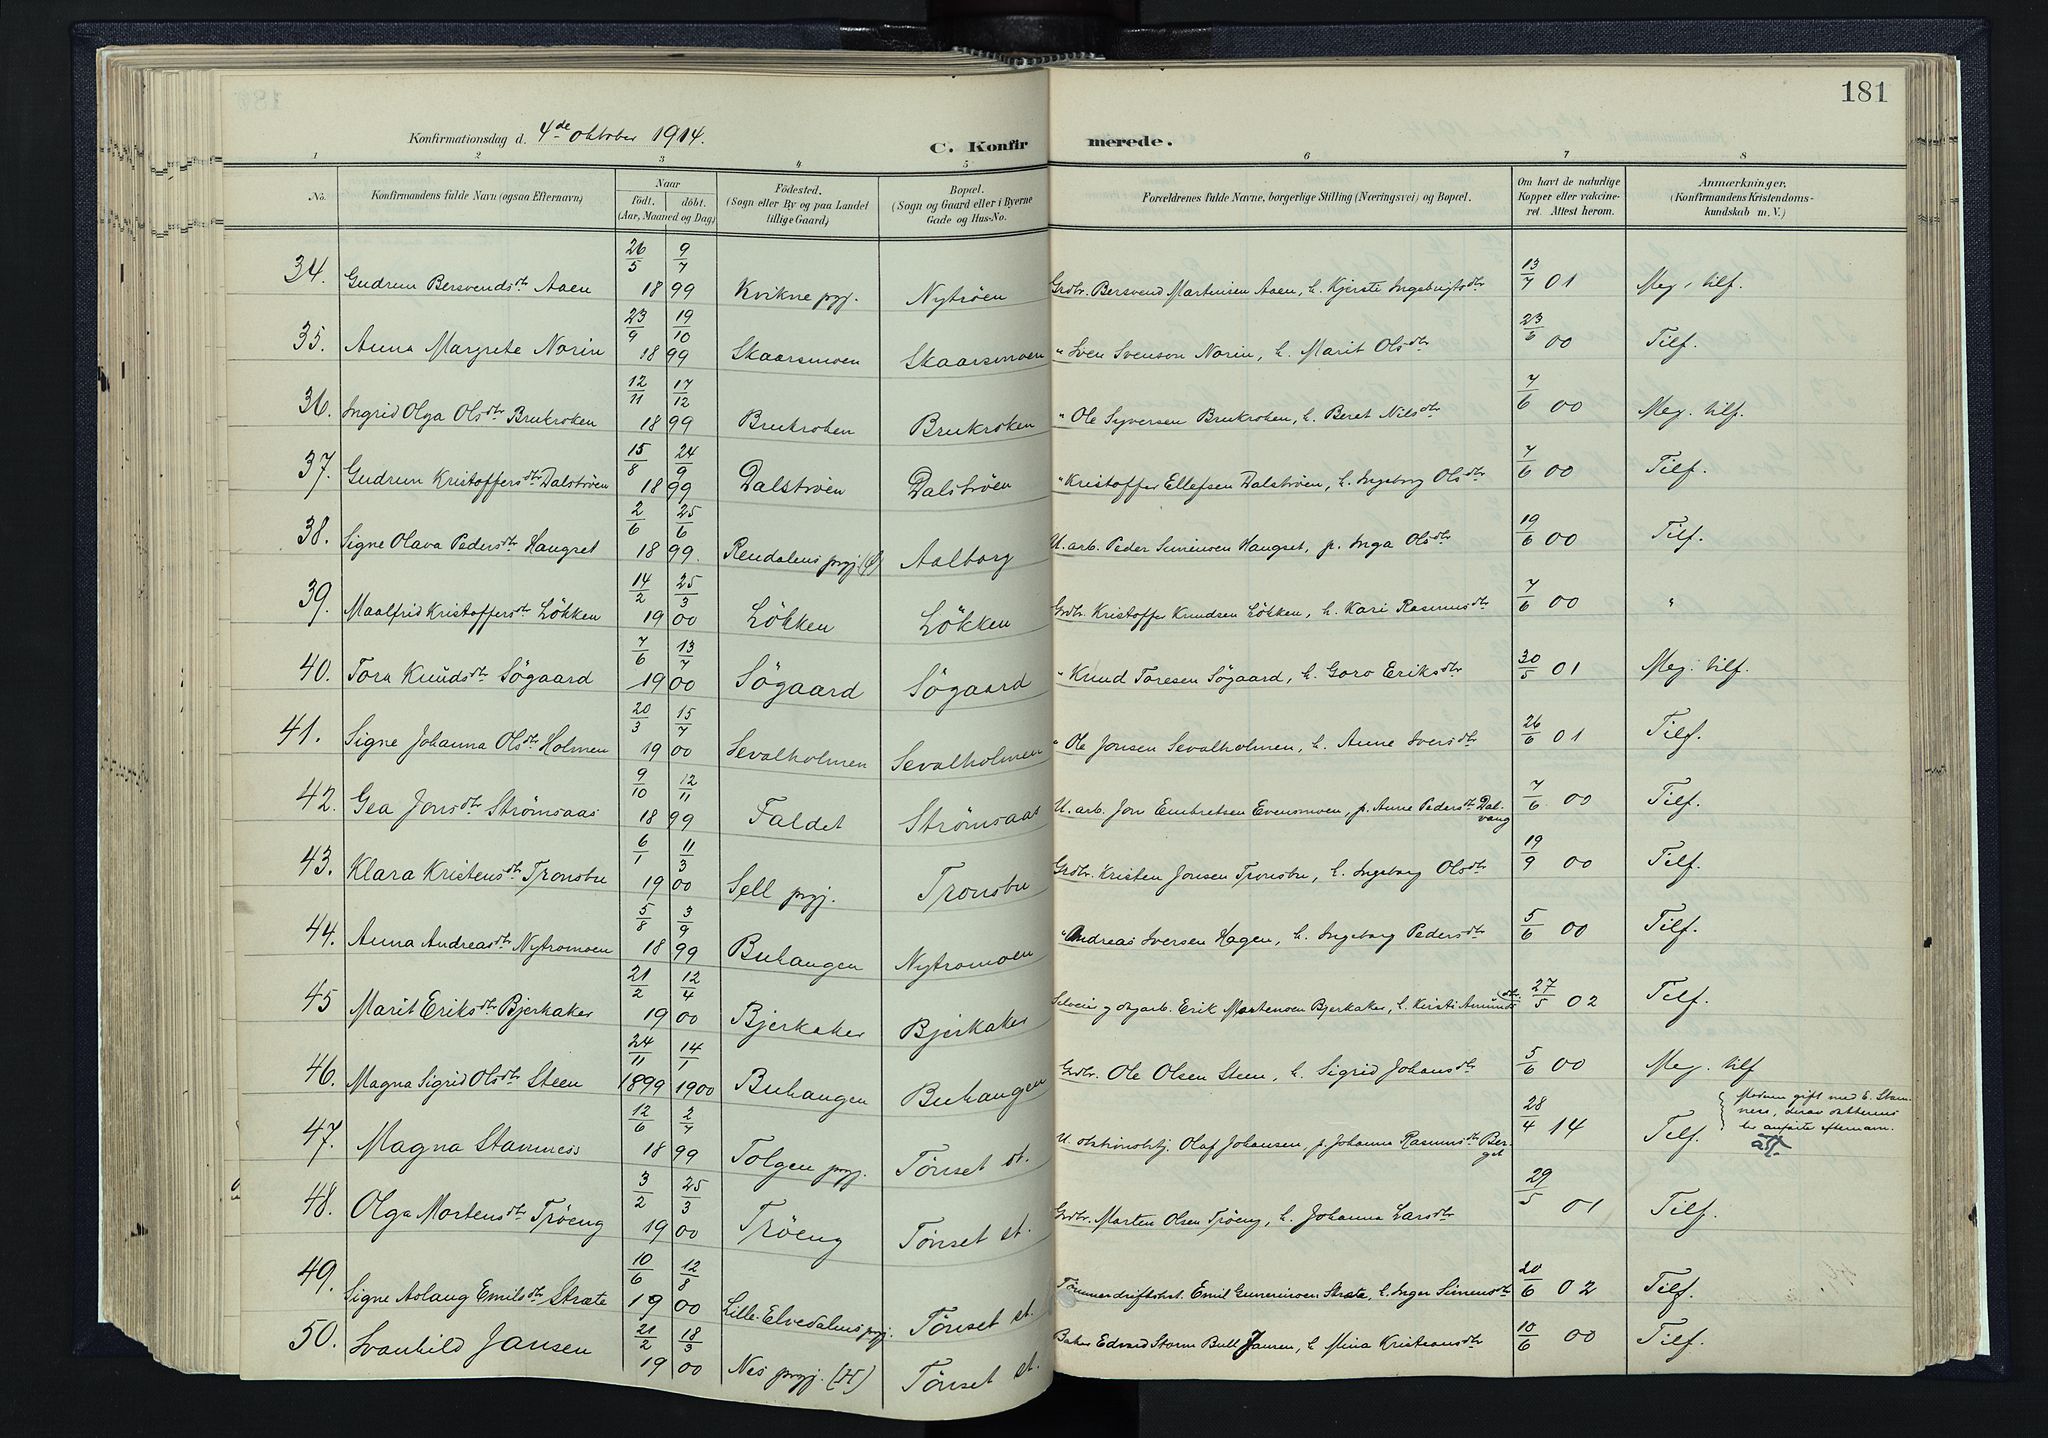 181
Konfirmationsdag d. 4de oktober 1914.
C. Konfirmerede.
1 2 3 4 5 6 7 8
No. Konfirmandens fulde Navn (ogsaa Efternavn) Naar födt. döbt. (Aar, Maaned og Dag) Födested. (Sogn eller By og paa Landet tillige Gaard) Bopæl. (Sogn og Gaard eller i Byerne Gade og Hus-No. Forældrenes fulde Navne, borgerlige Stilling (Næringsvei) og Bopæl. Om havt de naturlige Kopper eller vakcineret. Attest herom. Anmærkninger. (Konfirmandens Kristendomskundskab m. V.)
34. Gudrun Bersvendsdtr Aaen 26/5 1899 9/7 Kvikne prgj. Nytrøen Grdbr. Bersvend Martinsen Aaen, h. Kjerste Ingebrigtsdtr 13/7 01 Meg. tilf.
35. Anna Margrete Norin 23/9 1899 19/10 Skaarsmoen Skaarsmoen " Sven Svenson Norin, h. Marit Olsdtr 23/6 00 Tilf.
36. Ingrid Olga Olsdtr Brukroken 12/11 1899 17/12 Brukroken Brukroken " Ole Syversen Brukroken, h. Beret Nilsdtr 7/6 00 Meg. tilf.
37. Gudrun Kristoffersdtr Dalströen 15/8 1899 24/9 Dalströen Dalströen " Kristoffer Ellefsen Dalströen, h. Ingeborg Olsdtr 7/6 00 Tilf.
38. Signe Olava Pedersdtr Haugset 2/6 1899. 25/6 Rendalens prgj. Aalborg U. arb. Peder Simensen Haugset, p. Inga Olsdtr 19/6 00 Tilf.
39. Maalfrid Kristoffersdtr Lökken 14/2 1900 25/3 Lökken Lökken Grdbr. Kristoffer Knudsen Lökken, h. Kari Rasmusdtr 7/6 00 "
40. Tora Knudsdtr Sögaard 7/6 1900 13/7 Sögaard Sögaard " Knud Toresen Sögaard, h. Goro Eriksdtr 30/5 01 Meg. tilf.
41. Signe Johanna Olsdtr Holmen 20/3 1900 15/7 Sevalholmen Sevalholmen " Ole Jonsen Sevalholmen, h. Anne Iversdtr 26/6 01 Tilf.
42. Gea Jonsdtr Strømsaas 9/10 1899 12/11 Faldet Strømsaas U. arb. Jon Embretsen Evensmoen, p. Anne Pedersdtr Dalvang 7/6 00 Tilf.
43. Klara Kristensdtr Tronsbu 6/1 1900 11/3 Sell prgj. Tronsbu Grdbr. Kristen Jonsen Tronsbu, h. Ingeborg Olsdtr 19/9 00 Tilf.
44. Anna Andreasdtr Nytromoen 5/8 1899 3/9 Buhaugen Nytromoen " Andreas Iversen Hagen, h. Ingeborg Pedersdtr 5/6 00 Tilf.
45 Marit Eriksdtr Bjerkaker 21/2 1900 12/4 Bjerkaker Bjerkaker Selveig. og dagarb. Erik Mortensen Bjerkaker, h. Kirsti Amundsdtr. 27/5 02 Tilf.
46. Magna Sigrid Olsdtr Steen 24/11 1899 14/1 1900 Buhaugen Buhaugen Grdbr. Ole Olsen Steen, h. Sigrid Johansdtr 5/6 00 Meg. tilf
47. Magna Stamness 12/6 1899 2/7 Tolgen prgj. Tönset st. U. Olaf Johansen, p. Johanna Rasmusdtr Berget 28/4 14 Tilf. Moderen gift med E. Stamness, derav datterens her anførte efternavn.
48. Olga Mortensdtr Tröeng 3/2 1900 25/3 Tröeng Tönset st. Grdbr. Morten Olsen Tröeng, h. Johanna Larsdtr 29/5 01 Tilf.
49. Signe Aslaug Emilsdtr Stræte 10/6 1900 12/8 Lille-Elvedalens prgj. Tönset st. Tömmerdriftsbst. Emil Stræte, h. Inger Simensdtr 20/6 02 Tilf.
50. Svanhild Jansen 21/2 1900 18/3 Nes prgj. (H) Tönset st. Baker Edvard Storm Bull Jansen, h Mina Kristiansdtr 10/6 00 Tilf.